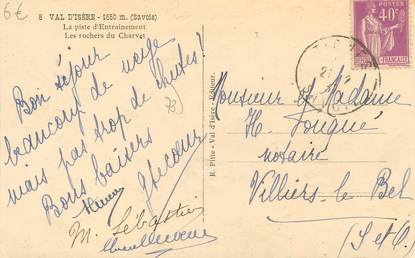 6€
8 VAL D'ISÈRE - 1850 m. (Savoie)
La piste d'Entraînement
Les rochers du Charvet
POSTES
40c
Bon séjour
beaucoup de neige
mais pas trop de chutes!
Bons baisers
M. Sébastien
R. Pitte - Val-d'Isère - Editeur.
Monsieur et Madame
H. Fouqué
notaire
Villiers le Bel
(S et O)